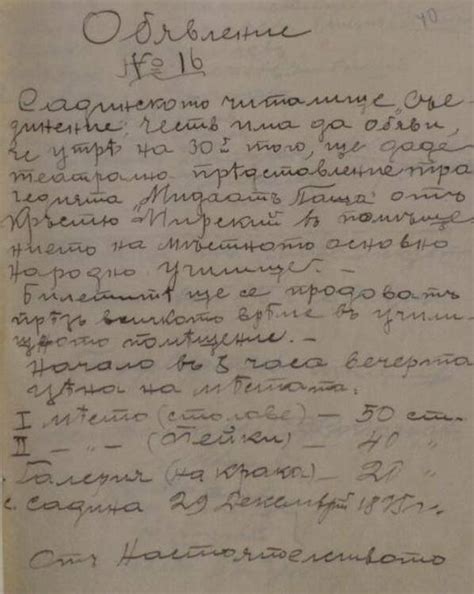 40
Обявление
№ 16
Садинското читалище „Съе-
динение, честь има да обяви,
че утрѣ на 30й того, ще даде
театрално прѣдставление тра-
гедията „Мидхатъ Паща" отъ
Кръстю Мирский въ помѣще-
нието на мѣстното основно
народно училище. —
Билетитѣ ще се продоватъ
прѣзъ всичкото врѣме въ учили-
щното помѣщение. —
Начало въ часа вечерта
цѣна на мѣстата:
I мѣсто (столаве) — 50 ст.
II — „ — (Пейки) — 40 „
Галерия (на крака) — 20 „
с. Садина 29 Декемврий 1895 г.
Отъ Настоятелството